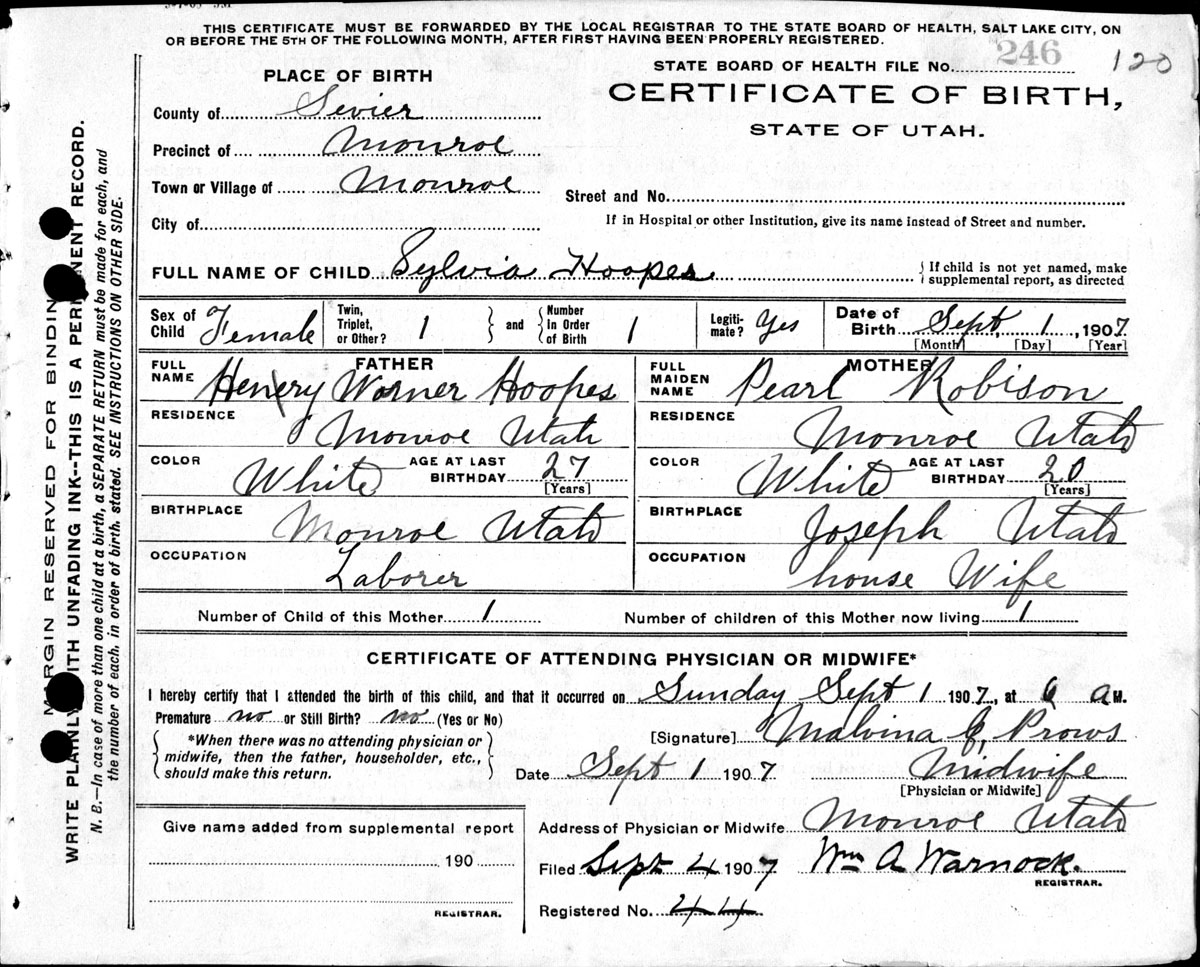 THIS CERTIFICATE MUST BE FORWARDED BY THE LOCAL REGISTRAR TO THE STATE BOARD OF HEALTH, SALT LAKE CITY, ON
OR BEFORE THE 5TH OF THE FOLLOWING MONTH, AFTER FIRST HAVING BEEN PROPERLY REGISTERED.
STATE BOARD OF HEALTH FILE No. 246 120
PLACE OF BIRTH
CERTIFICATE OF BIRTH,
STATE OF UTAH.
County of Sevier
Precinct of Monroe
Town or Village of Monroe
Street and No.
City of
If in Hospital or other Institution, give its name instead of Street and number.
FULL NAME OF CHILD Sylvia Hoopes
} If child is not yet named, make
supplemental report, as directed
Sex of Child Female
Twin, Triplet, or Other? 1
and
Number in Order of Birth 1
Legiti-mate? Yes
Date of Birth Sept, 1, 1907
[Month] [Day] [Year]
FATHER
FULL NAME Henery Worner Hoopes
MOTHER
FULL MAIDEN NAME Pearl Robison
RESIDENCE Monroe Utah
RESIDENCE Monroe Utah
COLOR White AGE AT LAST BIRTHDAY 27 [Years]
COLOR White AGE AT LAST BIRTHDAY 20 [Years]
BIRTHPLACE Monroe Utah
BIRTHPLACE Joseph Utah
OCCUPATION Laborer
OCCUPATION house Wife
Number of Child of this Mother 1
Number of children of this Mother now living 1
CERTIFICATE OF ATTENDING PHYSICIAN OR MIDWIFE*
I hereby certify that I attended the birth of this child, and that it occurred on Sunday Sept 1 1907, at 6 a M.
Premature no or Still Birth? no (Yes or No)
{ *When there was no attending physician or
midwife, then the father, householder, etc.,
should make this return. }
[Signature] Malvina C, Prows
Date Sept 1 1907 Midwife
[Physician or Midwife]
Give name added from supplemental report
190
REGISTRAR.
Address of Physician or Midwife Monroe Utah
Filed Sept 4 1907 Wm A Warnock.
REGISTRAR.
Registered No. 44
MARGIN RESERVED FOR BINDING
WRITE PLAINLY WITH UNFADING INK--THIS IS A PERMANENT RECORD.
N. B.—In case of more than one child at a birth, a SEPARATE RETURN must be made for each, and
the number of each, in order of birth, stated. SEE INSTRUCTIONS ON OTHER SIDE.